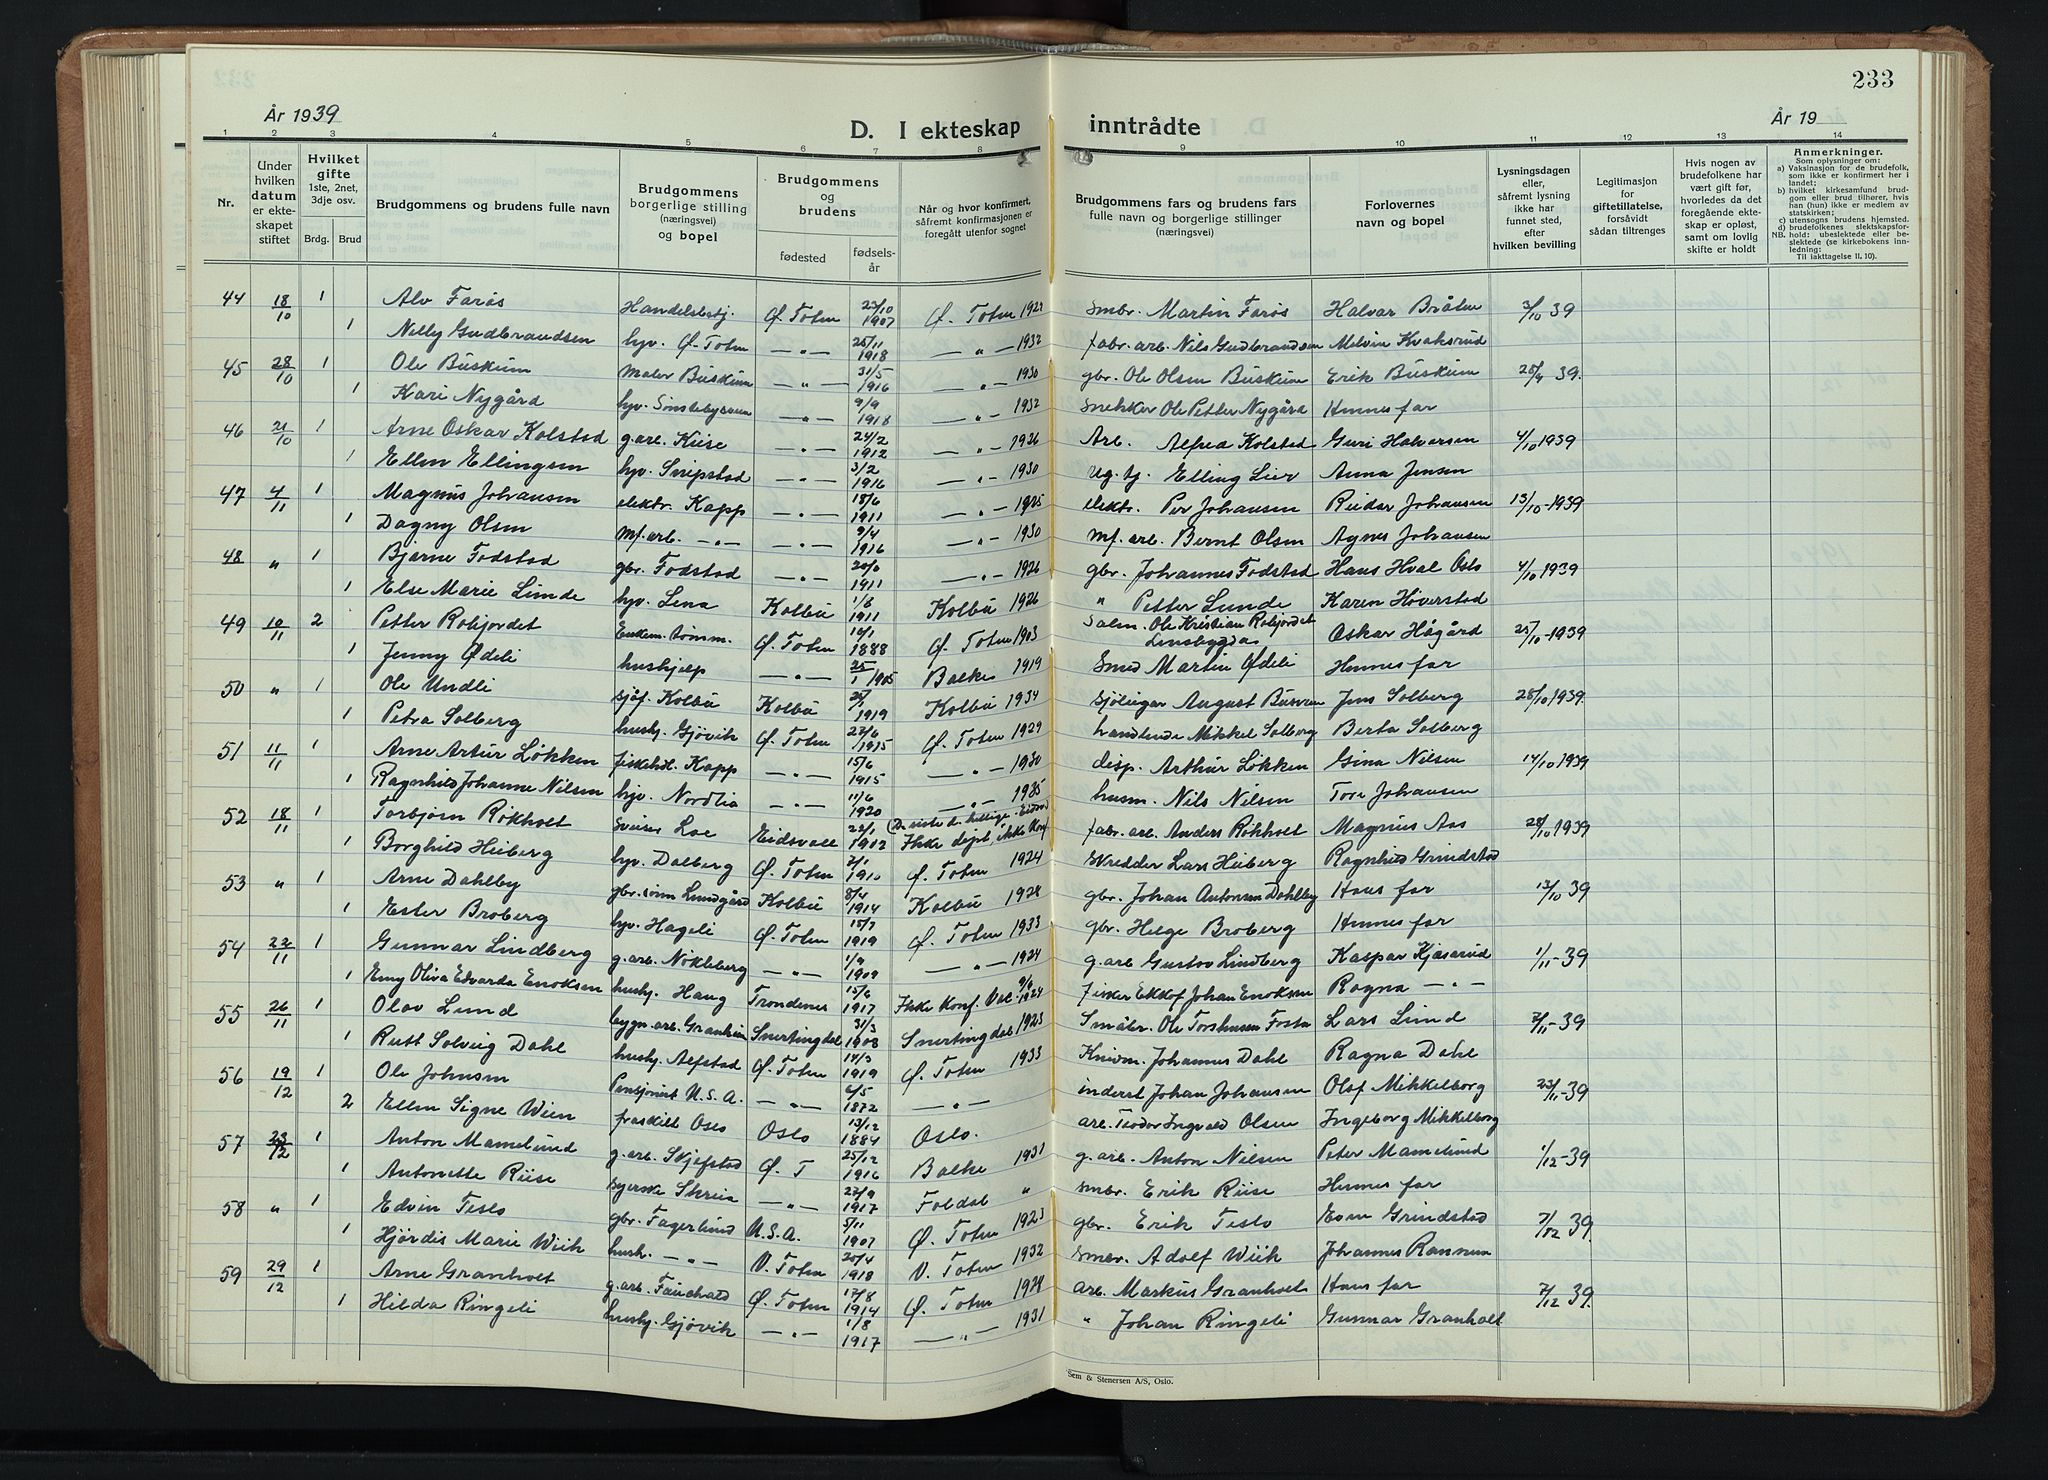 233
År 1939
År 19
D. I ekteskap inntrådte
1 2 3 4 5 6 7 8 9 10 11 12 13 14
Nr.
Under hvilken datum er ekteskapet stiftet
Hvilket gifte 1ste, 2net, 3dje osv.
Brdg. Brud
Brudgommens og brudens fulle navn
Brudgommens borgerlige stilling (næringsvei) og bopel
Brudgommens og brudens
fødested
fødselsår
Når og hvor konfirmert, såfremt konfirmasjonen er foregått utenfor sognet
Brudgommens fars og brudens fars fulle navn og borgerlige stillinger (næringsvei)
Forlovernes navn og bopel
Lysningsdagen eller, såfremt lysning ikke har funnet sted, efter hvilken bevilling
Legitimasjon for giftetillatelse, forsåvidt sådan tiltrenges
Hvis nogen av brudefolkene har vært gift før, hvorledes da det foregående ekteskap er opløst, samt om lovlig skifte er holdt
Anmerkninger.
Som oplysninger om:
a) Vaksinasjon for de brudefolk, som ikke er konfirmert her i landet;
b) hvilket kirkesamfund brudgom eller brud tilhører, hvis han (hun) ikke er medlem av statskirken;
c) utensogns brudens hjemsted.
d) brudefolkenes slektskapsforhold: ubeslektede eller beslektede (se kirkebokens innledning:
NB.
Til iakttagelse II, 10).
44 18/10 1 Alv Farøs Handelsbestj. Ø. Toten 23/10 1907 Ø. Toten 1922 Smbr. Martin Farøs Halvar Bråten 3/10 39
1 Nelly Gudbrandsen hjv. Ø. Toten —„— 25/11 1918 —„— 1932 fabr. arb. Nils Gudbrandsen Melvin Kvaksrud
45 28/10 1 Ole Buskum Maler Buskum —„— 31/5 1916 —„— 1930 gbr. Ole Olsen Buskum Erik Buskum 39.
1 Kari Nygård hjv. —„— 9/9 1918 —„— 1932 Snekker Ole Petter Nygård Hennes far
46 21/10 1 Arne Oskar Kolstad g.arb. Kise —„— 24/2 1912 —„— 1926 Arb. Alfred Kolstad Guri Halvorsen 4/10 1939
1 Ellen Ellingsen hjv. Snipstad —„— 3/2 1916 —„— 1930 Elling Lier Anna Jensen
47 4/11 1 Magnus Johansen elektr. Kapp —„— 18/6 1911 —„— 1925 elektr. Per Johansen Reidar Johansen 13/10-1939
1 Dagny Olsen mf. arb. —„— —„— 9/4 1916 —„— 1930 mf. arb. Bernt Olsen Agnes Johansen
48 „ 1 Bjarne Fodstad gbr. Fodstad —„— 20/6 1911 —„— 1926 gbr. Johannes Fodstad Hans Hval Oslo 4/10 1939
1 Else Marie Lunde hjv. Lena Kolbu 1/8 1911 Kolbu 1926 „ Petter Lunde Karen Høverstad
49 10/11 2 Petter Robjordet Enkem. tømm. Ø. Toten 10/1 1888 Ø. Toten 1903 Salm. Ole Kristian Robjordet Lensbygda Oskar Hågård 25/10-1939
1 Jenny Ødeli hushjelp —„— 25/1 1905 Balke 1919 Smed Martin Ødeli Hennes far
50 „ 1 Ole Undli sjåf. Kolbu Kolbu 1919 Kolbu 1934 August Jens Solberg 28/10 1939.
1 Petra Solberg hush. Gjøvik Ø. Toten 27/6 1915 Ø. Toten 1929 handlende Mikkel Solberg Berta Solberg
51 11/11 1 Arne Artur Løkken fiskehdl. Kapp —„— 15/6 1915 —„— 1930 disp. Arthur Løkken Gina Nilsen 14/10 1939
1 Ragnhild Johanne Nilsen hjv. Nordlia —„— 11/6 1920 —„— 1935 husm. Nils Nilsen Tore Johansen
52 18/11 1 Torbjørn Røkholt sveiser Loe Eidsvoll 22/1 1912 (De siste d. hellige - Eidsvoll Ikke døpt, ikke konf. fabr. arb. Anders Røkholt Magnus Aas 28/10 1939
1 Borghild Heiberg hjv. Dalberg Ø. Toten 2/1 1910 Ø. Toten 1924 skredder Lars Heiberg Ragnhild Grindstad
53 „ 1 Arne Dahlby gbr. sønn Lundgård Kolbu 8/4 1914 Kolbu 1928 gbr. Johan Antonsen Dahlby Hans far 13/10 39
1 Ester Broberg hjv. Hageli Ø. Toten 15/7 1919 Ø. Toten 1933 gbr. Helge Broberg Hennes far
54 22/11 1 Gunnar Lindberg g. arb. Nøkleberg —„— 1/9 1909 —„— 1924 g. arb Gustav Lindberg Kaspar Kjøserud 1/11-39
1 Emy Oliva Edvarda Enoksen hushj. Haug Trondenes 15/6 1917 Ikke konf. 1924 Fisker Johan Enoksen Ragna —„—
55 26/11 1 Olav Lund bygn. arb. Granheim Snertingdal 31/3 1908 Snertingdal 1923 Småbr. Ole Lars Lund 7/11-39
1 Rutt Solveig Dahl hushj. Alfstad Ø. Toten 14/3 1919 Ø. Toten 1933 Johannes Dahl Ragna Dahl
56 19/12 1 Ole Johnsen Pensjonist U.S.A. —„— 6/5 1872 —„— inderst Johan Johansen Olaf Mikkelborg 23/11-39
2 Ellen Signe Wien fraskilt Oslo Oslo 13/12 1884 Oslo. arb. Teodor Ingvald Olsen Ingeborg Mikkelborg
57 23/12 1 Anton Mamelund g. arb. Skjefstad Ø. T 25/12 1916 Balke 1931 g. arb. Anton Nilsen Peter Mamelund 1/12-39
1 Antonette Riise syerske Skreia —„— 27/9 1917 Foldal „ smbr. Erik Riise Hennes far
58 „ 1 Edvin Teslo gbr. Fagerlund U.S.A. 5/11 1907 Ø. Toten 1923 gbr. Erik Teslo Even Grindstad 7/12 39.
1 Hjørdis Marie Wiik hush. —„— V. Toten 20/4 1918 V. Toten 1932 smbr. Adolf Wiik Johannes Rannum
59 29/12 1 Arne Granholt g. arb. Fauchald Ø. Toten 17/8 1914 Ø. Toten 1928 arb. Markus Granholt Hans far 7/12 39.
1 Hilda Ringeli hushj. Gjøvik —„— 1/8 1917 —„— 1931 „ Johan Ringeli Gunnar Granholt
Sem & Stenersen A/S, Oslo.